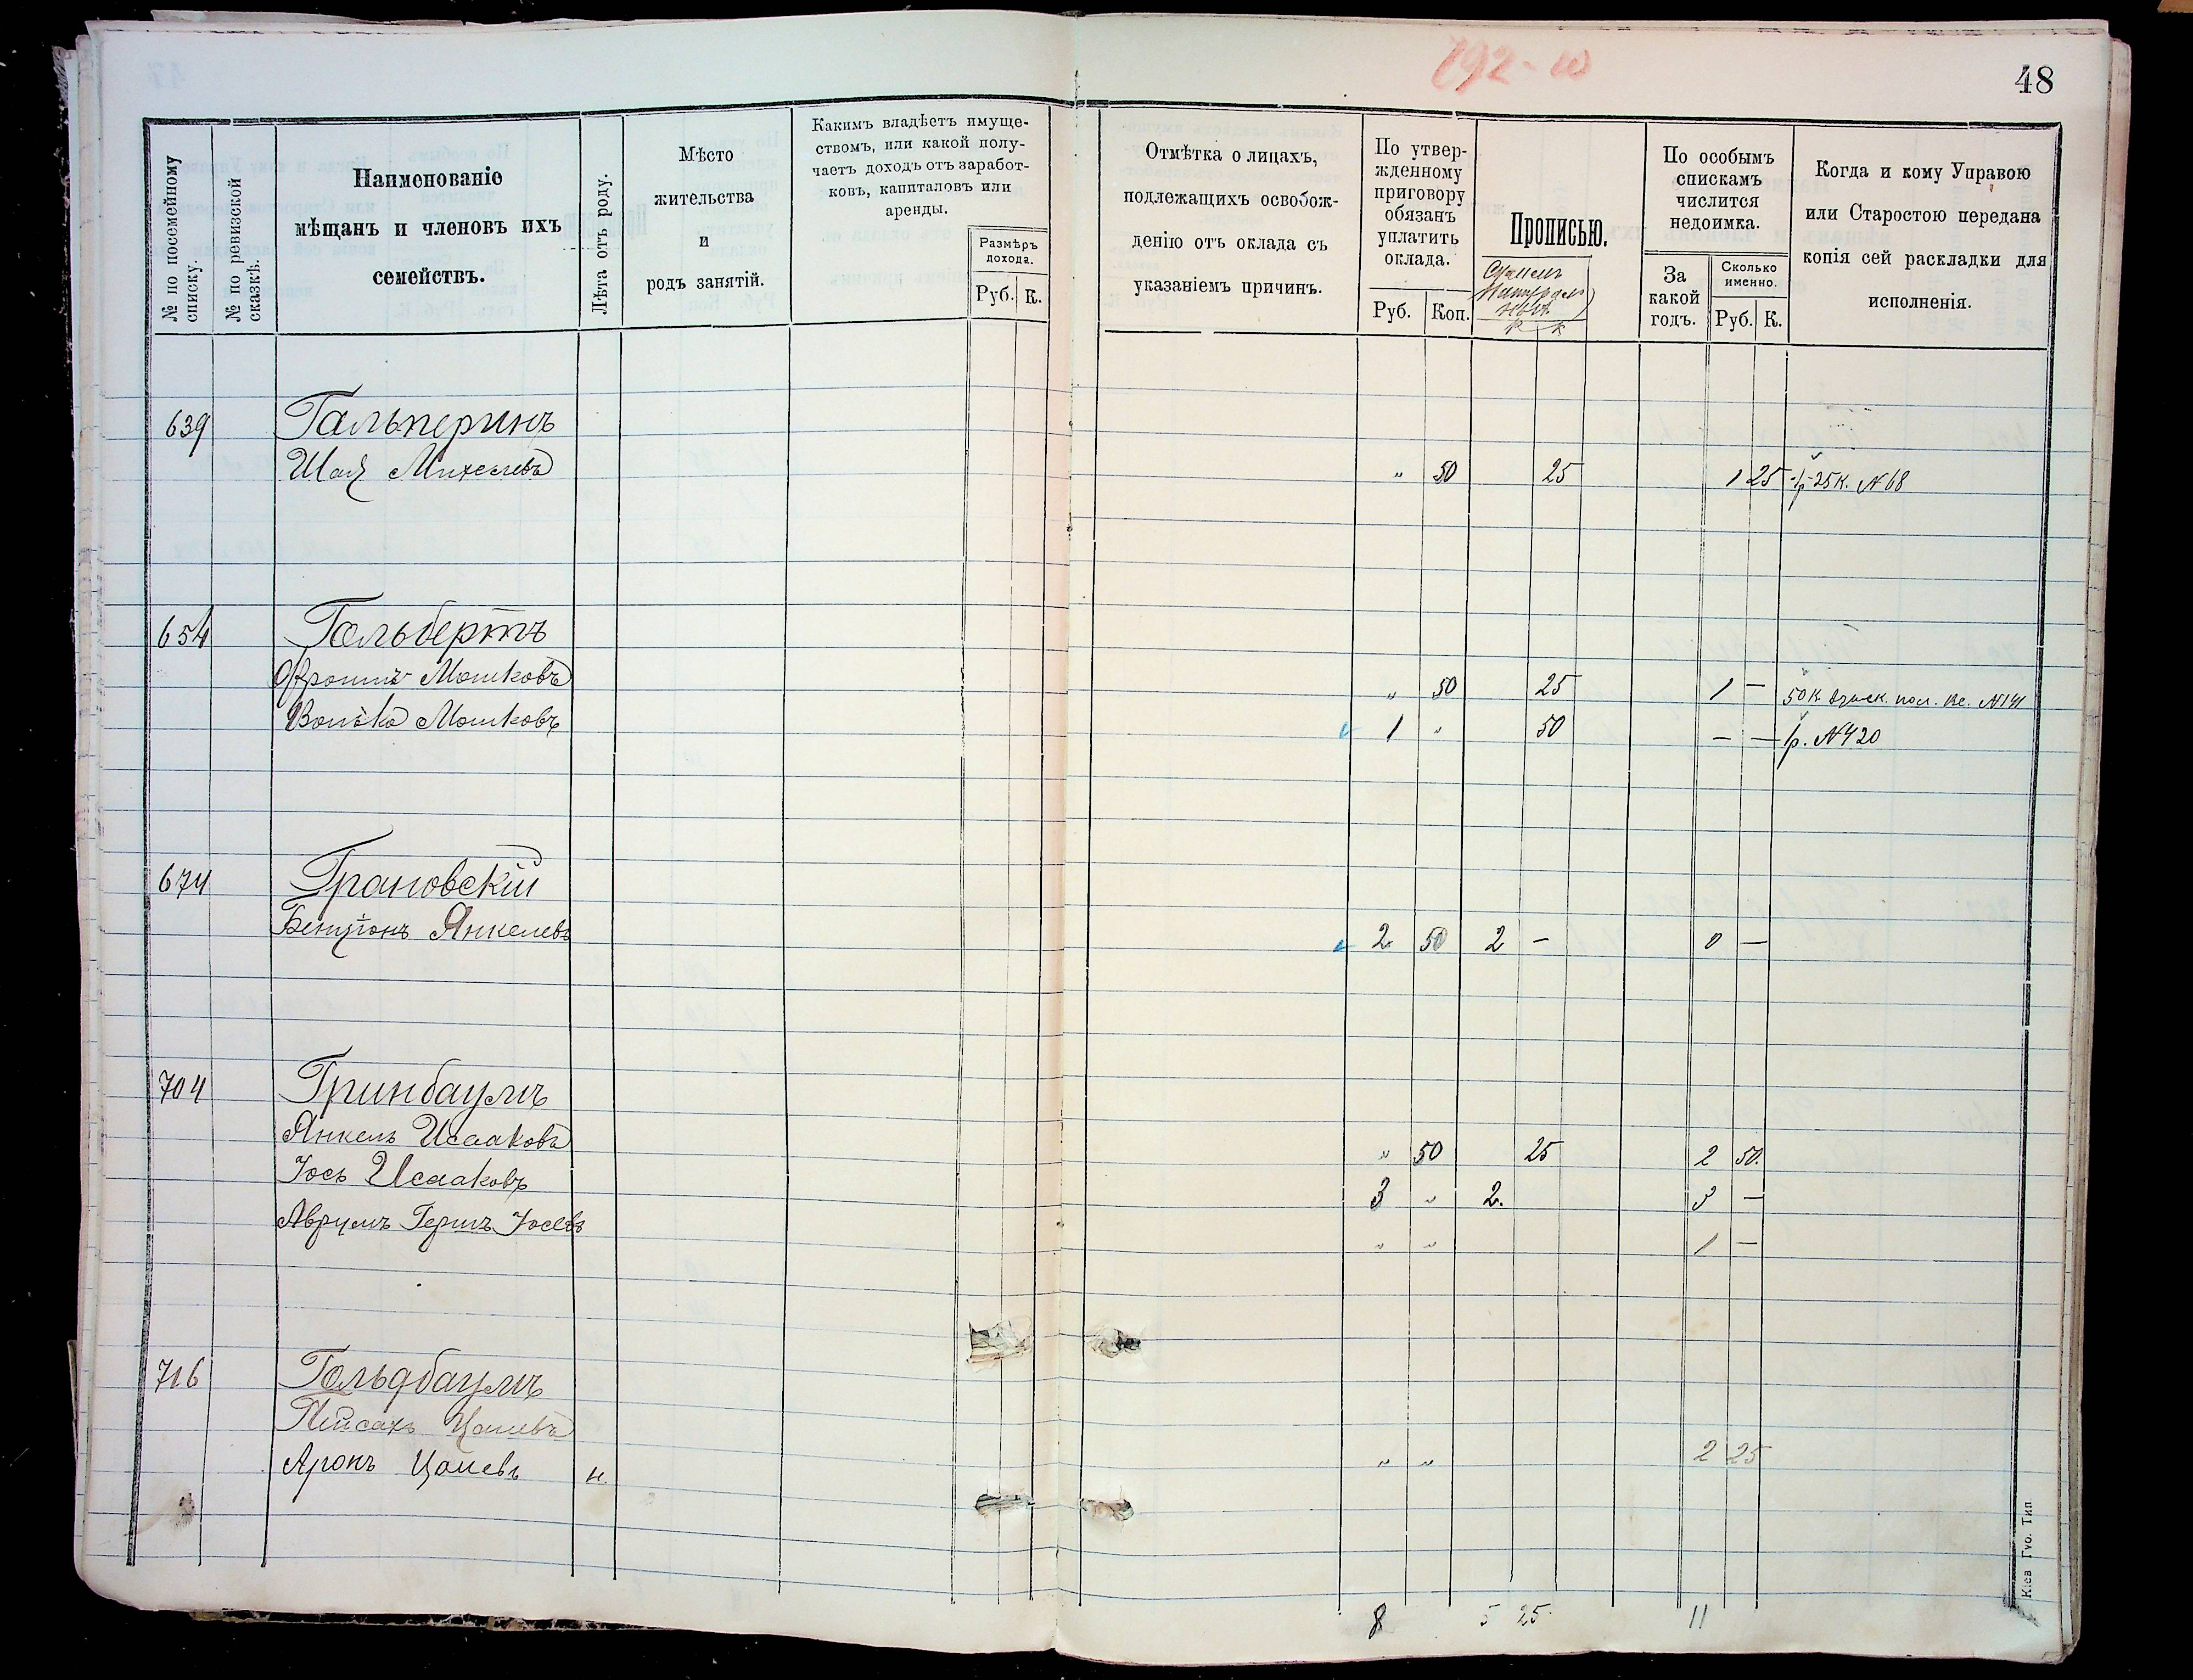 48
№ по посемейному списку.
№ по ревизской сказкѣ.
Наименованіе
мѣщанъ и членовъ ихъ
семействъ.
Лѣта отъ роду.
Мѣсто
жительства
и
родъ занятій.
Какимъ владѣетъ имуще-
ствомъ, или какой полу-
чаетъ доходъ отъ заработ-
ковъ, капиталовъ или
аренды.
Размѣръ
дохода.
Руб. К.
Отмѣтка о лицахъ,
подлежащихъ освобож-
денію отъ оклада съ
указаніемъ причинъ.
По утвер-
жденному
приговору
обязанъ
уплатить
оклада.
Руб. Коп.
Прописью.
По особымъ
спискамъ
числится
недоимка.
За
какой
годъ.
Сколько
именно.
Руб. К.
Когда и кому Управою
или Старостою передана
копія сей раскладки для
исполненія.
639 Гальперинъ
Шая Михелевъ „ 50 25 1 25 1р 25 к. № 68
654 Гольбертъ
Фроимъ Мошковъ „ 50 25 1 — 50 к № 141
Волько Мошковъ 1 „ 50 — — 1р. № 420
674 Грановскій
Бенціонъ Янкелевъ 2 50 2 — 0 —
704 Гринбаумъ
Янкель Исааковъ „ 50 25 2 50.
Іось Исааковъ 3 „ 2. 3 —
Аврумъ Гершъ Іосевъ „ „ 1 —
716 Гольдбаумъ
Пейсахъ Цалевъ
Аронъ Цалевъ н. „ „ 2 25
8 5 25 11
Кіев Губ. Тип